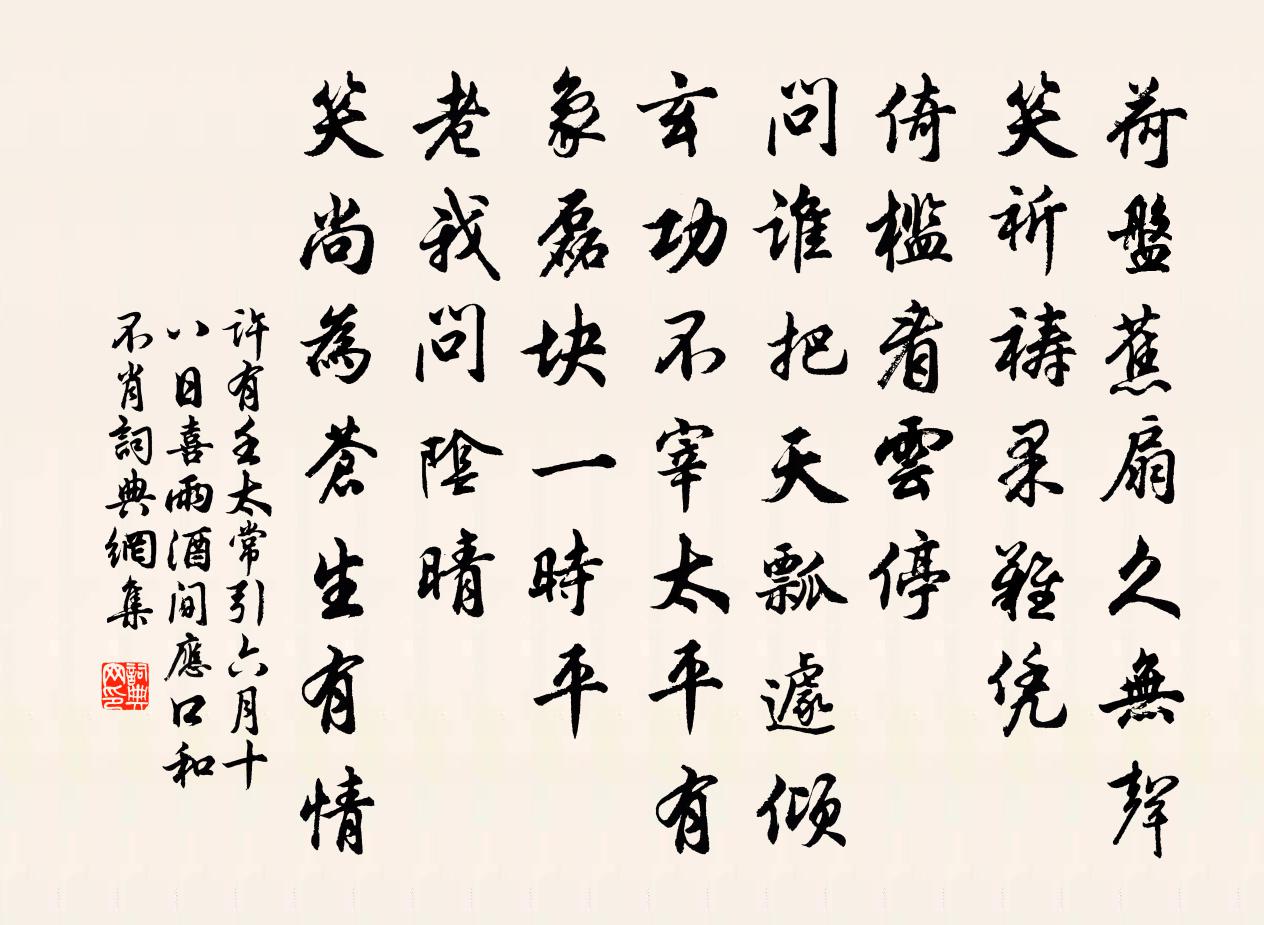 荷盤蕉扇久無聲
笑祈禱果難凭
倚檻看雲停
問誰把天瓢遽傾
玄功不宰太平有
象磊塊一時平
老我問陰晴
笑尚為蒼生有情
許有壬太常引六月十
八日喜雨酒間應口和
不肖詞典網集
詞典網印